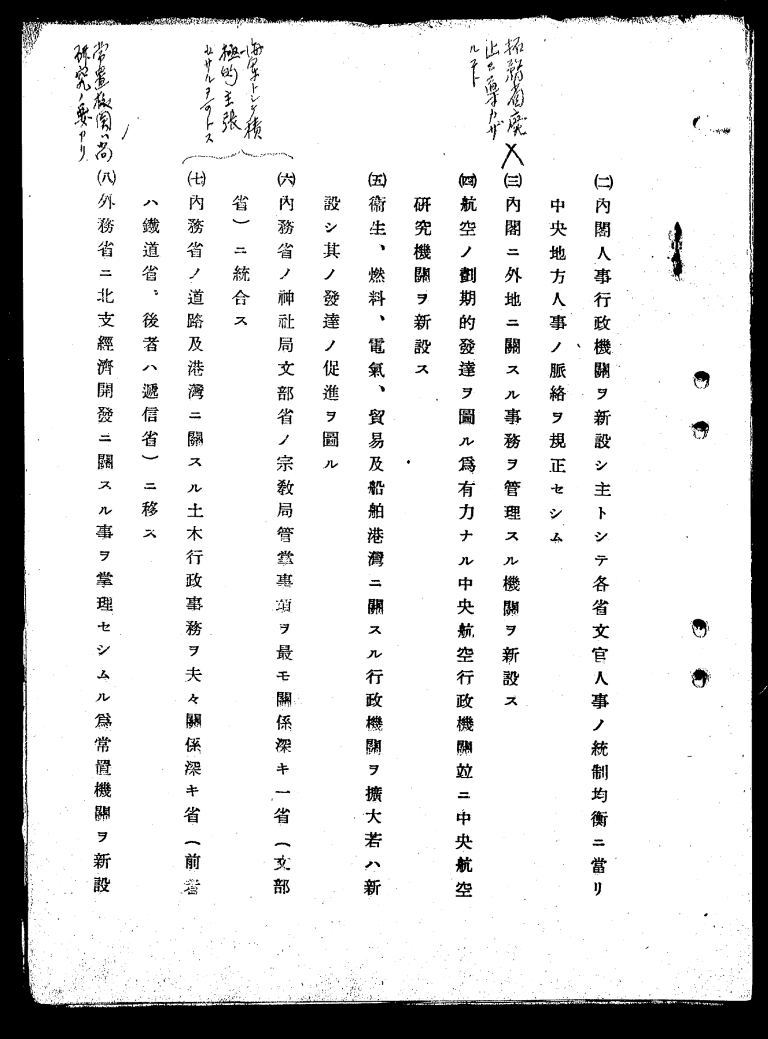 ㈡內閣人事行政機關ヲ新設シ主トシテ各省文官人事ノ統制均衡ニ當リ
中央地方人事ノ脈絡ヲ規正セシム
拓務省廢
止セ
ルコト
㈢內閣ニ外地ニ關スル事務ヲ管理スル機關ヲ新設ス
㈣航空ノ劃期的發達ヲ圖ル爲有力ナル中央航空行政機關竝ニ中央航空
硏究機關ヲ新設ス
㈤衞生、燃料、電氣、貿易及船舶港灣ニ關スル行政機關ヲ擴大若ハ新
設シ其ノ發達ノ促進ヲ圖ル
海軍トシテ積
極的主張
セサルヲ可トス
㈥內務省ノ神社局文部省ノ宗敎局管掌事項ヲ最モ關係深キ一省(文部
省)ニ統合ス
㈦內務省ノ道路及港灣ニ關スル土木行政事務ヲ夫々關係深キ省(前者
ハ鐵道省、後者ハ遞信省)ニ移ス
常置機關ハ尚
硏究ノ要アリ
㈧外務省ニ北支經濟開發ニ關スル事ヲ掌理セシムル爲常置機關ヲ新設